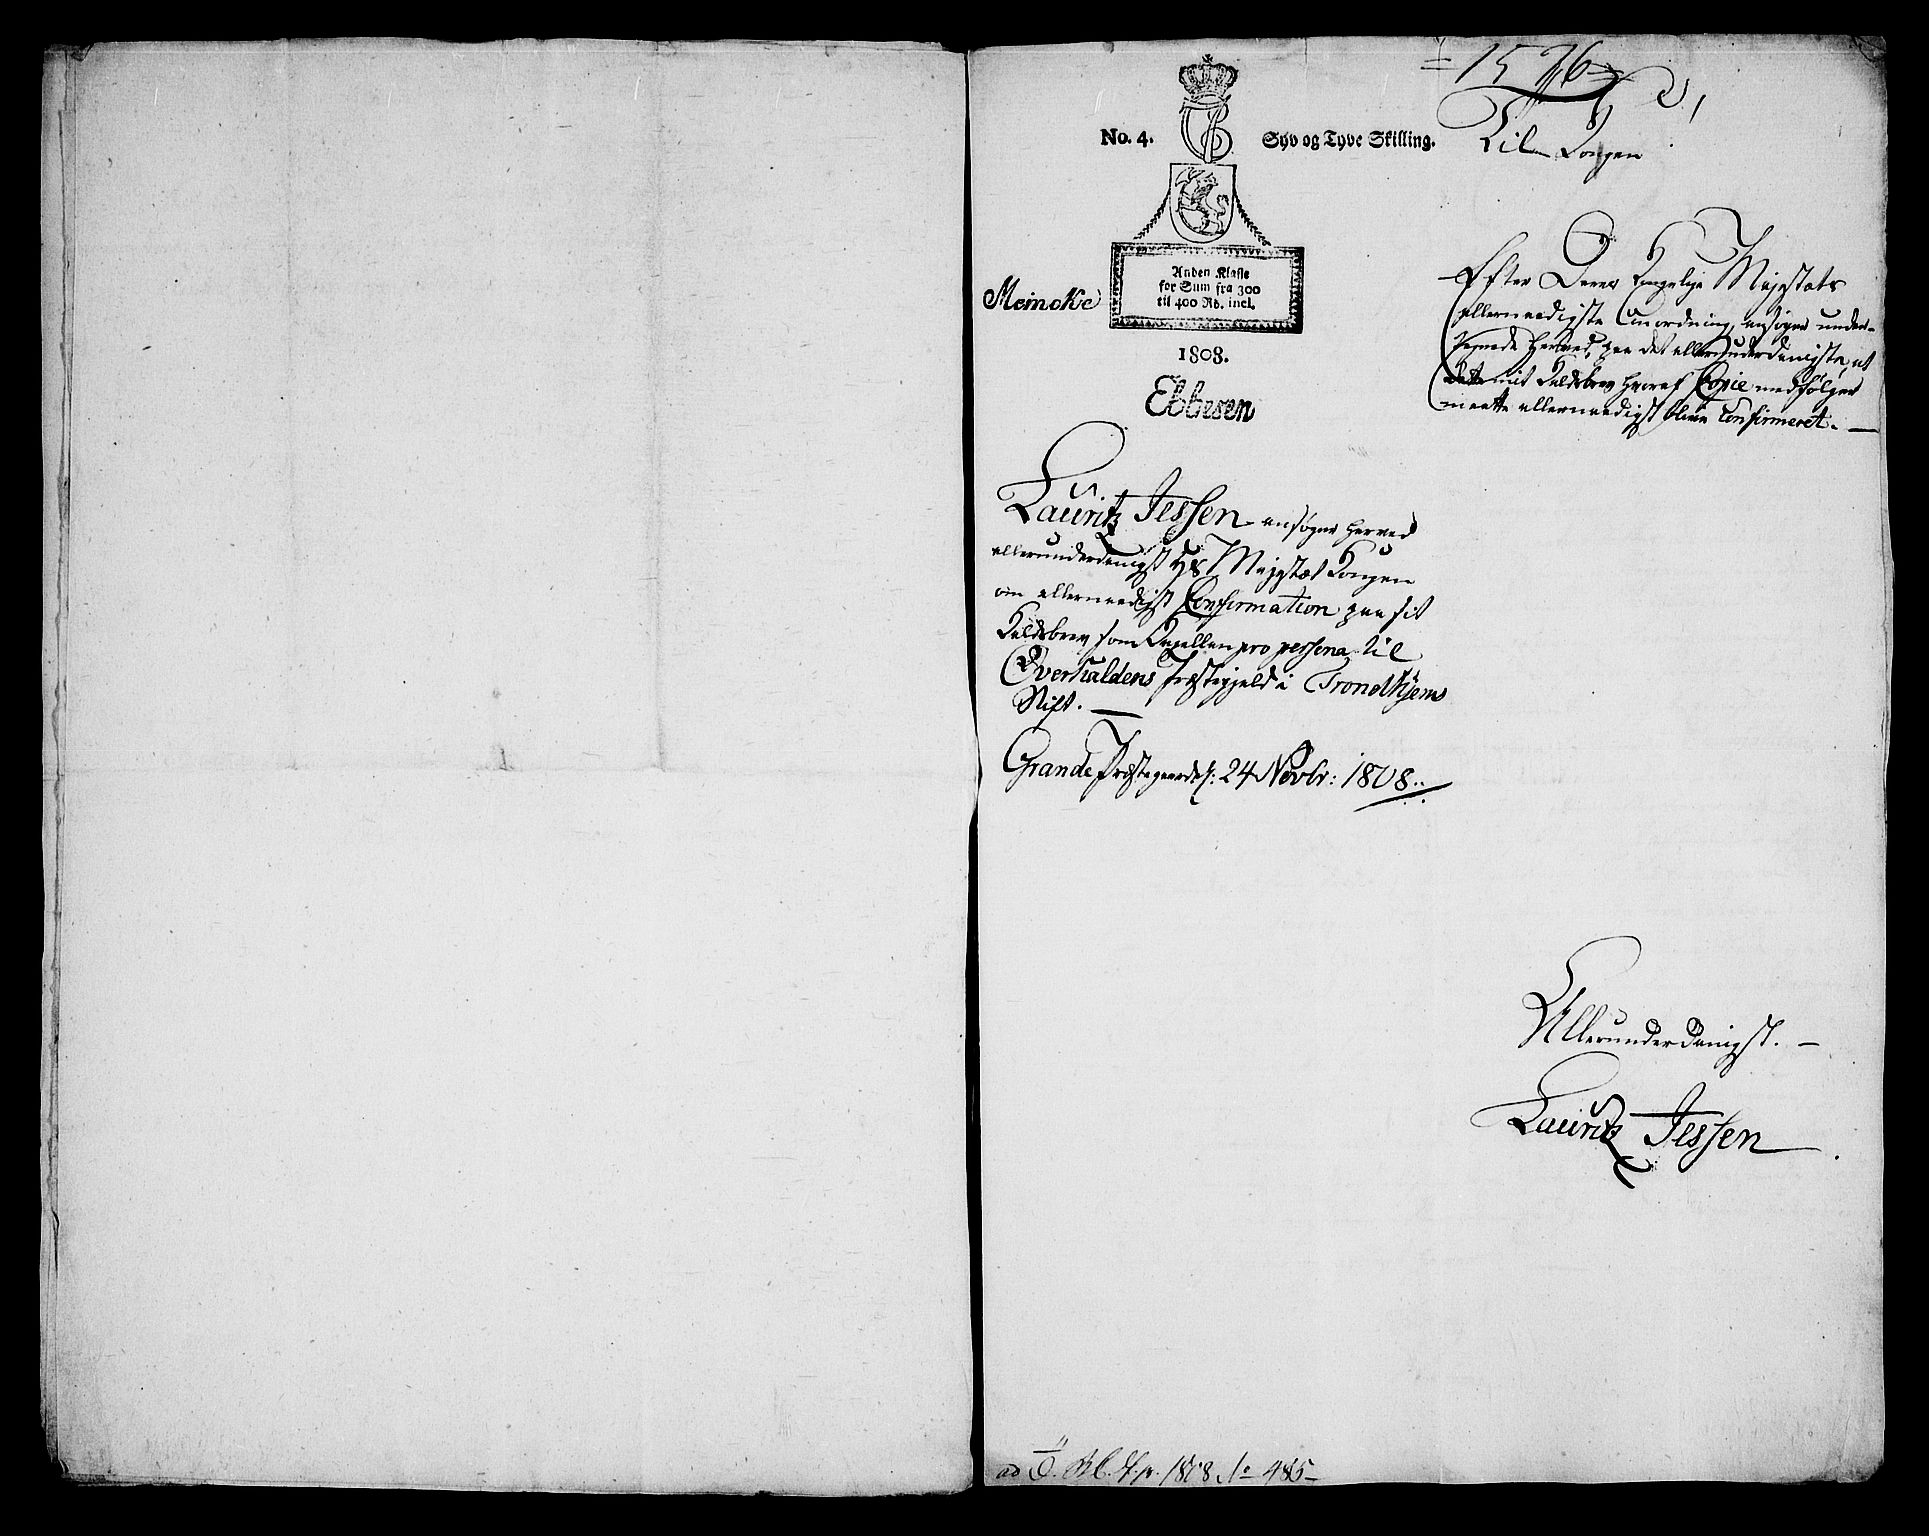 =1576=
No. 4. Syv og Tyve Skilling.
Anden Klasse
for Sum fra 300
til 400 Rd. incl.
Meincke
1808.
Ebbesen
Til Kongen
Efter Deres Kongelige Majestæts
allernaadigste Anordning, ansøger under-
tegnede herved, paa det allerunderdanigste, at
dette mit Kaldsbrev hvoraf Copie medfølger
maatte allernaadigst blive Confirmeret. —
Lauritz Jessen ansøger herved
allerunderdanigst Hs Majestæt Kongen
om allernaadigst Confirmation paa sit
Kaldsbrev som Capellan pro persona til
Overhaldens Præstegjeld i Trondhjems
Stift. —
Grande Præstegaard d: 24 Novbr: 1808.
Allerunderdanigst. —
Lauritz Jessen
ad 1808 No 485